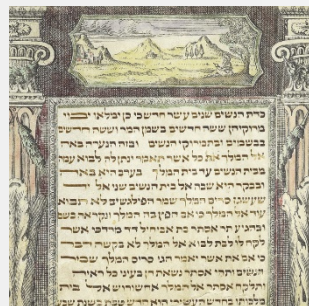 כדת הנשים שנים עשר חדש כי כן ימלאו ימי
מרוקיהן ששה חדשים בשמן המר וששה חדשים
בבשמים ובתמרוקי הנשים ובזה הנערה באה
אל המלך את כל אשר תאמר ינתן לה לבוא עמה
מבית הנשים עד בית המלך בערב היא באה
ובבקר היא שבה אל בית הנשים שני אל יד
שעשגז סריס המלך שמר הפילגשים לא תבוא
עוד אל המלך כי אם חפץ בה המלך ונקראה בשם
ובהגיע תר אסתר בת אביחיל דד מרדכי אשר
לקח לו לבת לבוא אל המלך לא בקשה דבר
כי אם את אשר יאמר הגי סריס המלך שמר
הנשים ותהי אסתר נשאת חן בעיני כל ראיה
ותלקח אסתר אל המלך אחשורוש אל בית
מלכותו בחדש העשירי הוא חדש טבת בשנת שבע